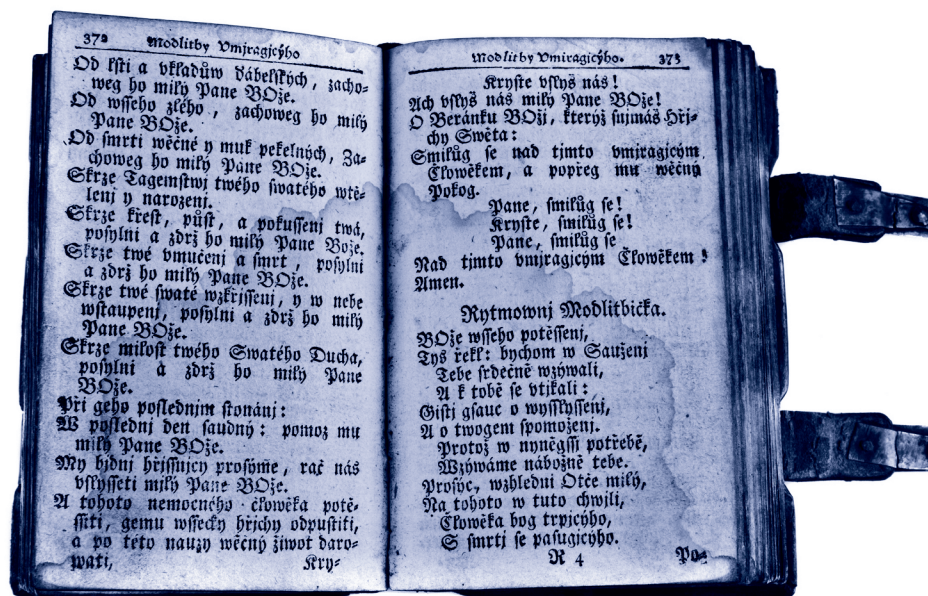 372 Modlitby Vmjragjcýho
Od lſti a vkladůw ďábelſkých, zacho-
weg ho milý Pane BOže.
Od wſſeho zlého, zachoweg ho milý
Pane BOže.
Od ſmrti wěčné y muk pekelných, Za-
choweg ho milý Pane BOže.
Skrze Tagemſtwj twého ſwatého wtě-
lenj y narozenj.
Skrze křeſt, půſt, a pokuſſenj twá,
poſylni a zdrž ho milý Pane Bože.
Skrze twé vmučenj a ſmrt, poſylni
a zdrž ho milý Pane BOže.
Skrze twé ſwaté wzkřjſſenj, y w nebe
wſtaupenj, poſylni a zdrž ho milý
Pane BOže.
Skrze miloſt twého Swatého Ducha,
poſylni a zdrž ho milý Pane
BOže.
Při geho poſlednjm ſtonánj:
W poſlednj den ſaudný: pomoz mu
milý Pane BOže.
My bjdnj hřjſſnjcy proſýme, rač nás
vſlyſſeti milý Pane BOže.
A tohoto nemocného člowěka potě-
ſſiti, gemu wſſecky hřjchy odpuſtiti,
a po této nauzy wěčný život daro-
wati, Kry-
Modlitby Vmiragicýho. 373
Kryſte vſlyš nás!
Ach vſlyš nás milý Pane BOže!
O Beránku BOžj, kterýž ſnjmáš Hřj-
chy Swěta:
Smilůg ſe nad tjmto vmjragjcým
Člowěkem, a popřeg mu wěčný
Pokog.
Pane, ſmilůg ſe!
Kryſte, ſmilůg ſe!
Pane, ſmilůg ſe
Nad tjmto vmjragjcým Člowěkem!
Amen.
Rytmownj Modlitbička.
BOže wſſeho potěſſenj,
Tys řekl: bychom w Sauženj
Tebe ſrdečně wzýwali,
A k tobě ſe vtjkali:
Giſtj gſauc o wyſlyſſenj,
A o twogem ſpomoženj.
Protož w nyněgſſj potřebě,
Wzýwáme nábožně tebe.
Proſýc, wzhlednj Otče milý,
Na tohoto w tuto chwjli,
Člowěka bog trpjcýho,
S ſmrtj ſe paſugjcýho.
R 4 Po-